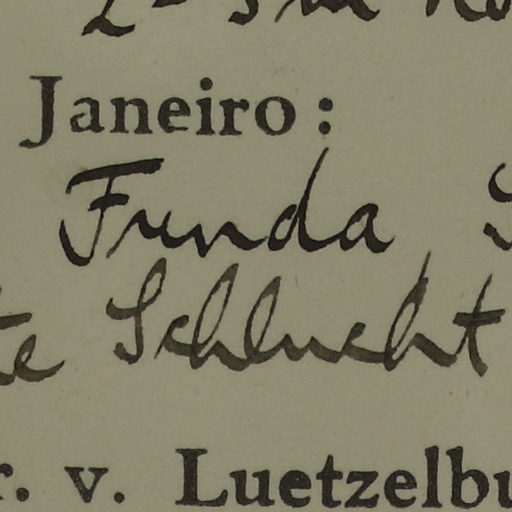 Janeiro:
Funda,
te Schlucht
r. v. Luetzelbu